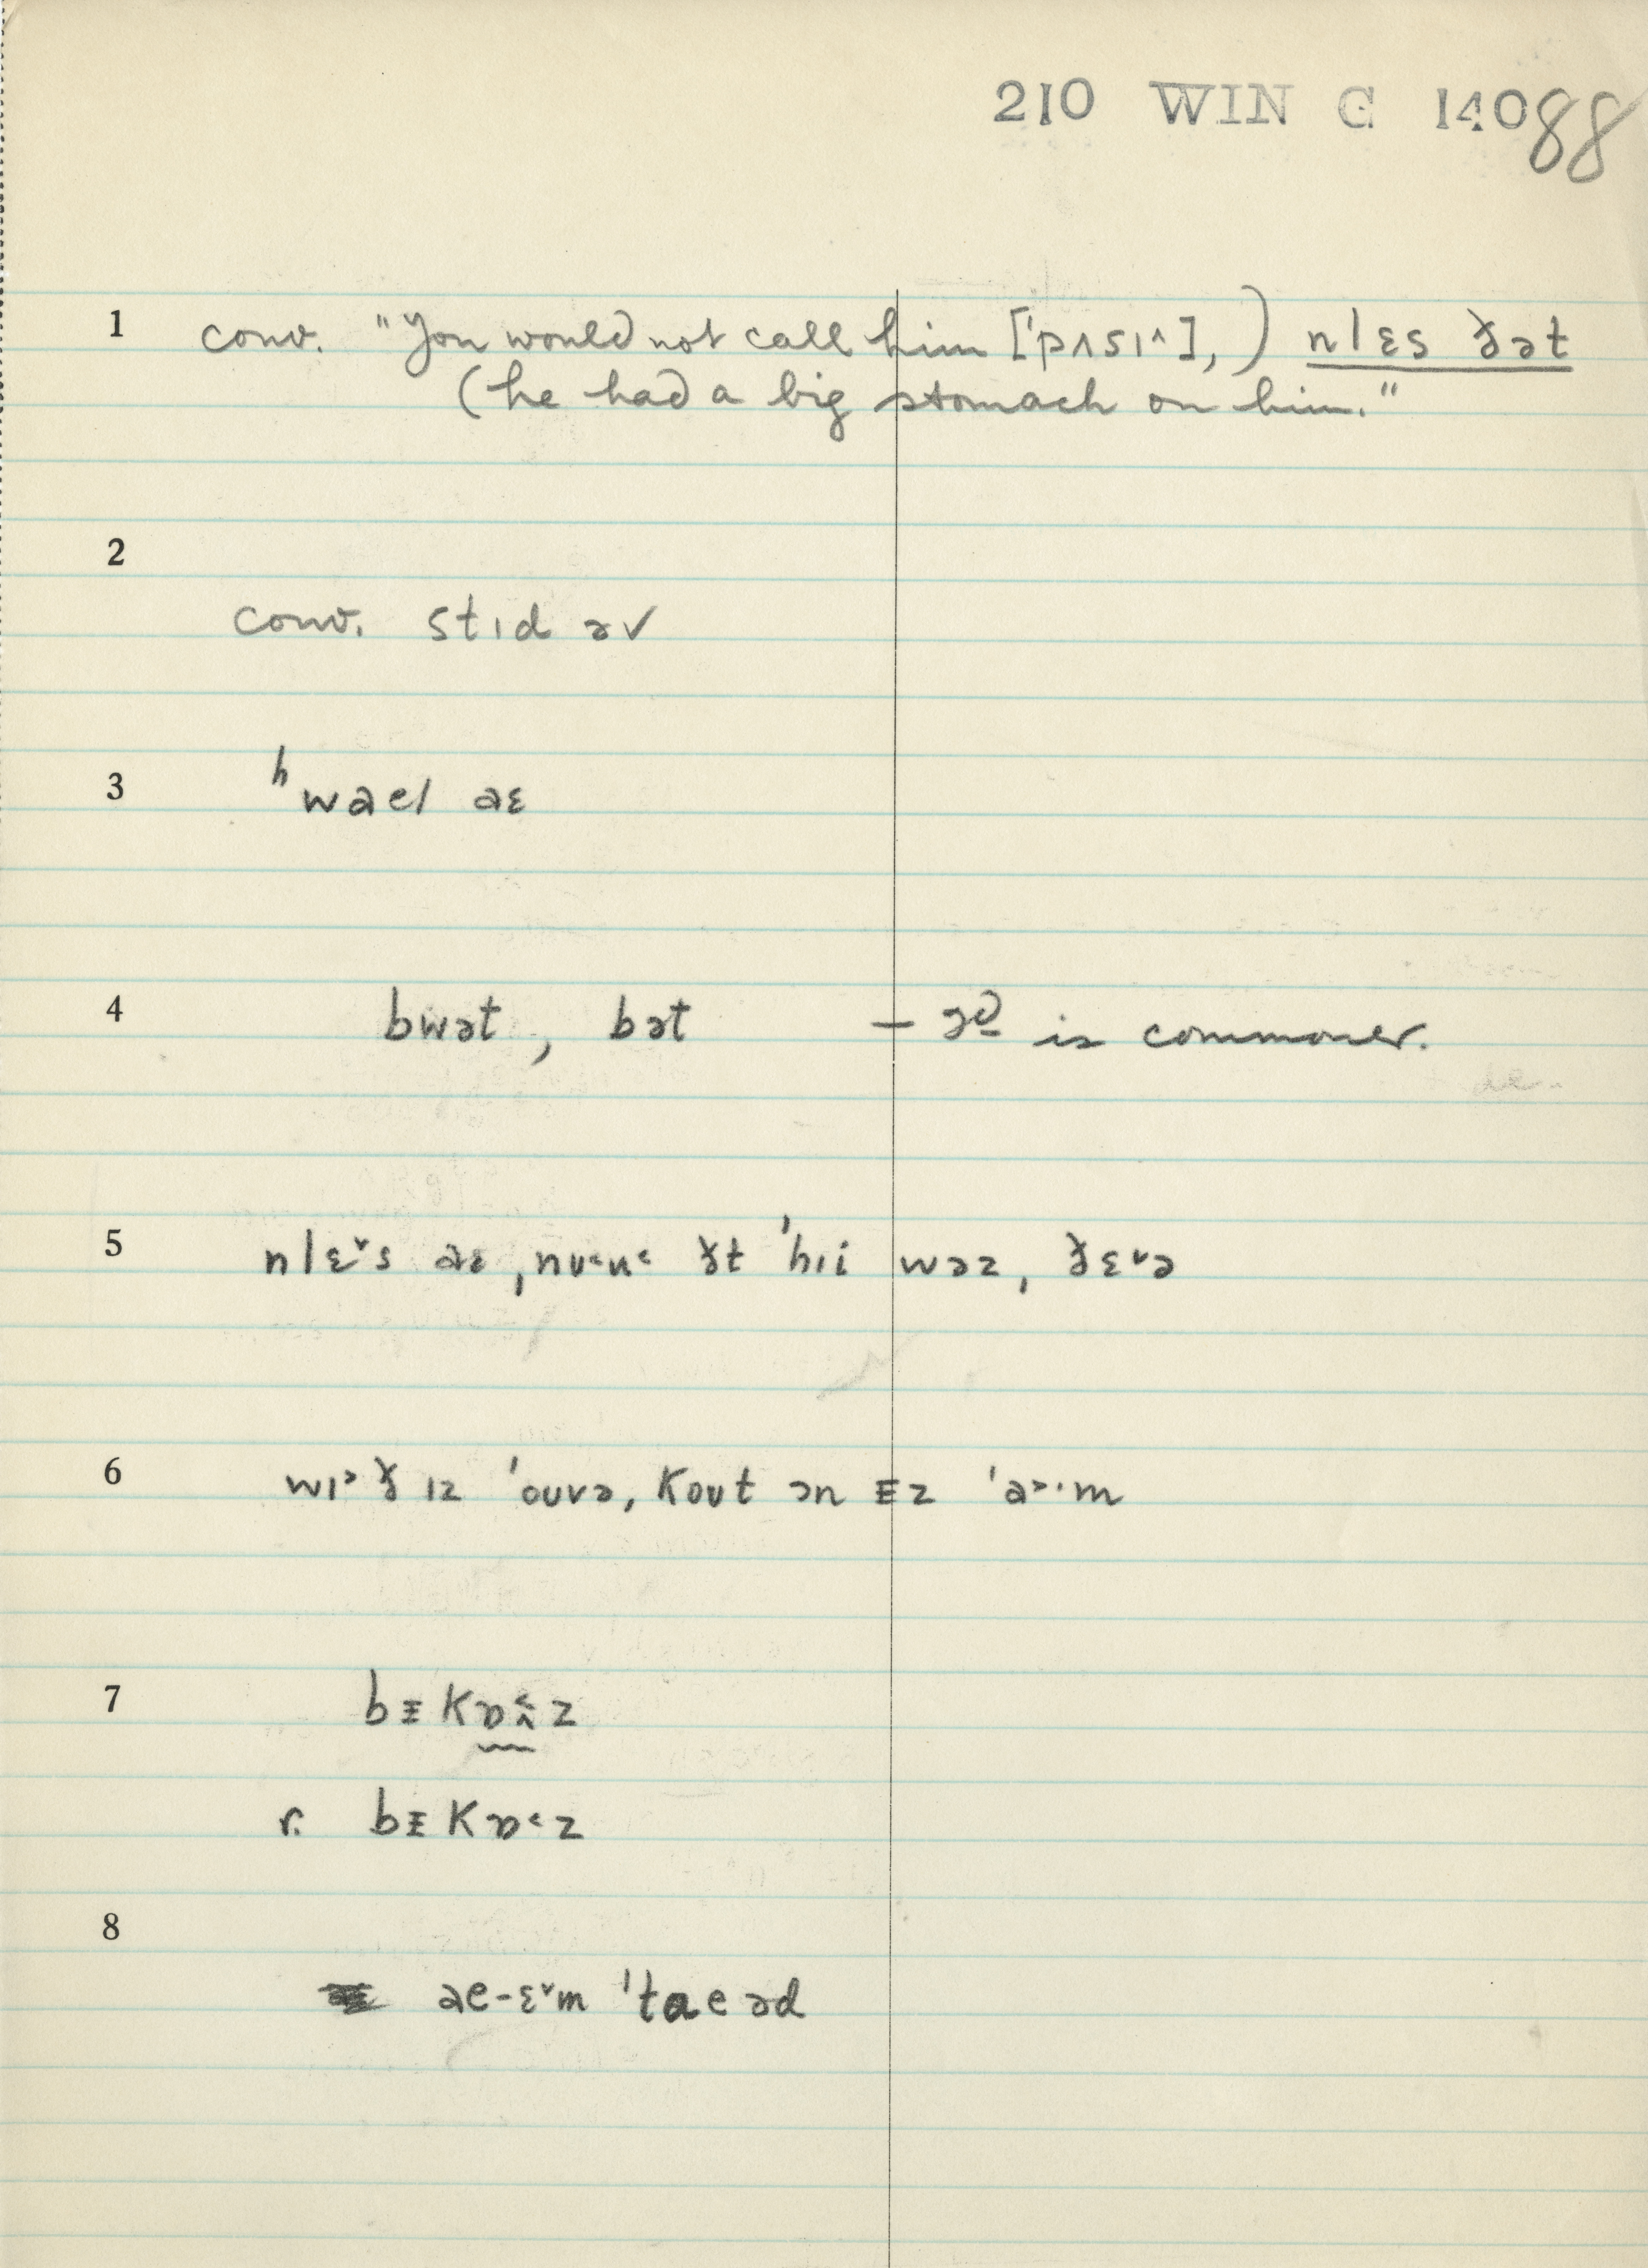 210 WIN G 140 88
1 conv. "You would not call him ['pʌsɪ^],) nlɛs ðət
(he had a big stomach on him."
2
conv. stɪd əv
3 ʰwael aɛ
4 bwət, bət – is commoner.
5 nlɛ˅s aɛ, nʊ˂u˂ ðt 'hɪi wəz, ðɛ˅ə
6 wɪ˃ð ɪz 'ouvə, kout ən ɪz 'a˃·m
7 bɪkɒ˂z
r. bɪkɒ˂z
8
ae-ɛ˅m 'taeəd